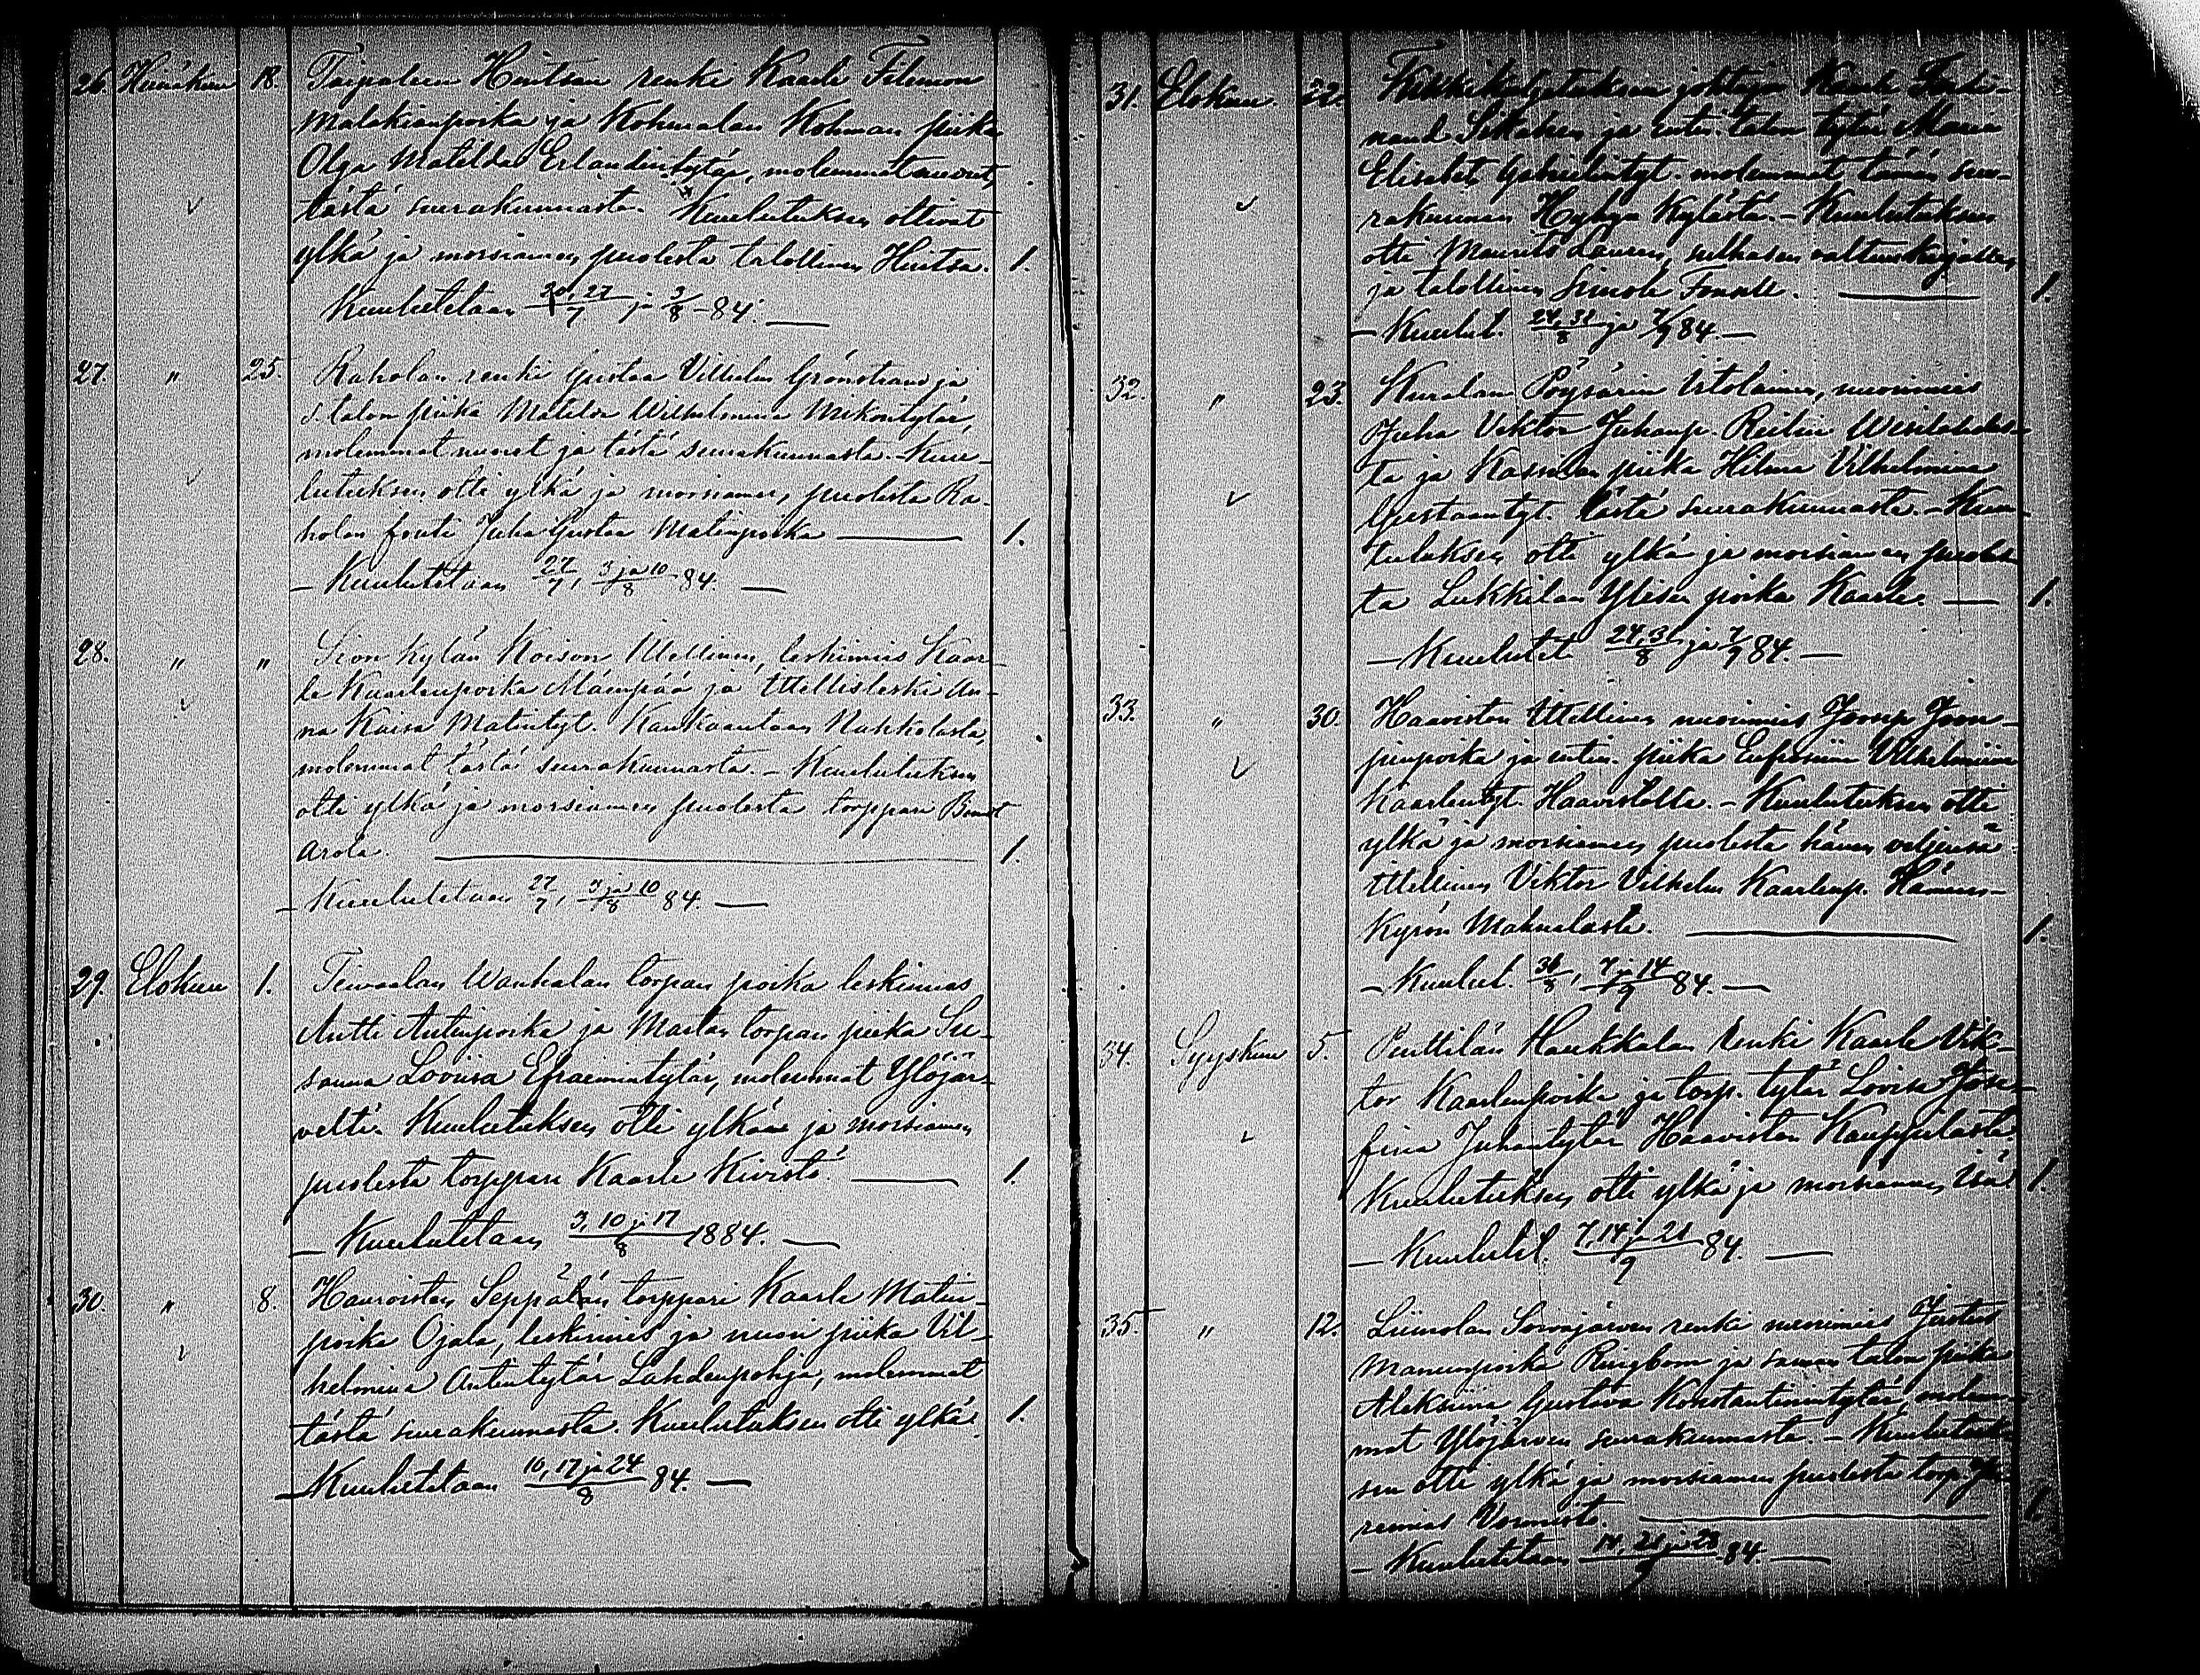 26. Heinäkuu 18. Taipaleen Huitsan renki Kaarle Filemon
Malakianpoika ja Kohmalan Kohman piika
Olga Matilda Erlandintytär, molemmat nuoret,
tästä seurakunnasta. Kuulutuksen ottivat
ylkä ja morsiamen puolesta talollinen Huitsa. 1.
Kuulutetaan 20, 27/7 ja 3/8 - 84. —
27. " 25. Raholan renki Gustaa Vilhelm Grönstrand ja
s. talon piika Matilda Wilhelmina Mikontytär,
molemmat nuoret ja tästä seurakunnasta. - Kuu-
lutuksen otti ylkä ja morsiamen puolesta Ra-
holan fouti Juha Gustaa Matinpoika — 1.
— Kuulutetaan 27/7, 3 ja 10/8 84. —
28. " " Sion kylän Koison Itellinen, leskimies Kaar-
le Kaarlenpoika Mäenpää ja Itellisleski An-
na Kaisa Matintyt. Kankaantaan Nuhkolasta,
molemmat tästä seurakunnasta. - Kuulutuksen
otti ylkä ja morsiamen puolesta torppari
Arola. — 1.
— Kuulutetaan 27/7, 3 ja 10/8 84. —
29. Elokuu 1. Teivaalan Wanhalan torpan poika leskimies
Antti Antinpoika ja Martan torpan piika Su-
sanna Loviisa Efraimintytär, molemmat Ylöjär-
veltä. Kuulutuksen otti ylkä ja morsiamen
puolesta torppari Kaarle Kivistö. — 1.
— Kuulutetaan 3, 10 ja 17/8 1884. —
30. " 8. Haaviston Seppälän torppari Kaarle Matin-
poika Ojala, leskimies ja nuori piika Vil-
helmina Antintytär Lahdenpohja, molemmat
tästä seurakunnasta. Kuulutuksen otti ylkä. 1.
— Kuulutetaan 10, 17 ja 24/8 84. —
31. Elokuu 22. johtaja Kaarle Ferdi-
nand ja entin. talon tytär Maria
Elisabet Gabrielintyt. molemmat tämän seu-
rakunnan Hyhyn kylästä. - Kuulutuksen
otti Maurits Lauren, sulhasen valtuuskirjalla,
ja talollinen Simola Frank. — 1.
— Kuulut. 24, 31/8 ja 7/9 84. —
32. " 23. Kuralan Pöysärin Irtolainen, nuorimies
Juha Viktor Juhanp. Reilin Wesilahdes-
ta ja piika Hilma Vilhelmina
Gustaantyt. tästä seurakunnasta. - Kuu-
lutuksen otti ylkä ja morsiamen puoles-
ta Lukkilan Ylisen poika Kaarle. — 1.
— Kuulutet 24, 31/8 ja 7/9 84. —
33. " 30. Haaviston Itellinen nuorimies Joosep Joose-
pinpoika ja entin. piika Eufrosiina Vilhelmiina
Kaarlentyt. Haavistolta. - Kuulutuksen otti
ylkä ja morsiamen puolesta hänen veljensä
Itellinen Viktor Vilhelm Kaarlenp. Hämeen-
Kyrön Mahnalasta. — 1.
— Kuulut. 31/8, 7 ja 14/9 84. —
34. Syyskuu 5. Penttilän Haukkalan renki Kaarle Vik-
tor Kaarlenpoika ja torp. tytär Loviisa Jose-
fina Juhantytär Haaviston Kauppilasta.
Kuulutuksen otti ylkä ja morsiamen isä 1.
— Kuulutet. 7, 14 ja 21/9 84. —
35. " 12. Liimolan Soivajärven renki nuorimies Justus
Manunpoika Ringbom ja saman talon piika
Aleksiina Gustava Konstantinintytär, molem-
mat Ylöjärven seurakunnasta. - Kuulutuk-
sen otti ylkä ja morsiamen puolesta torp. Je-
remias Vormistö. — 1.
— Kuulutetaan 14, 21 ja 28/9 84. —